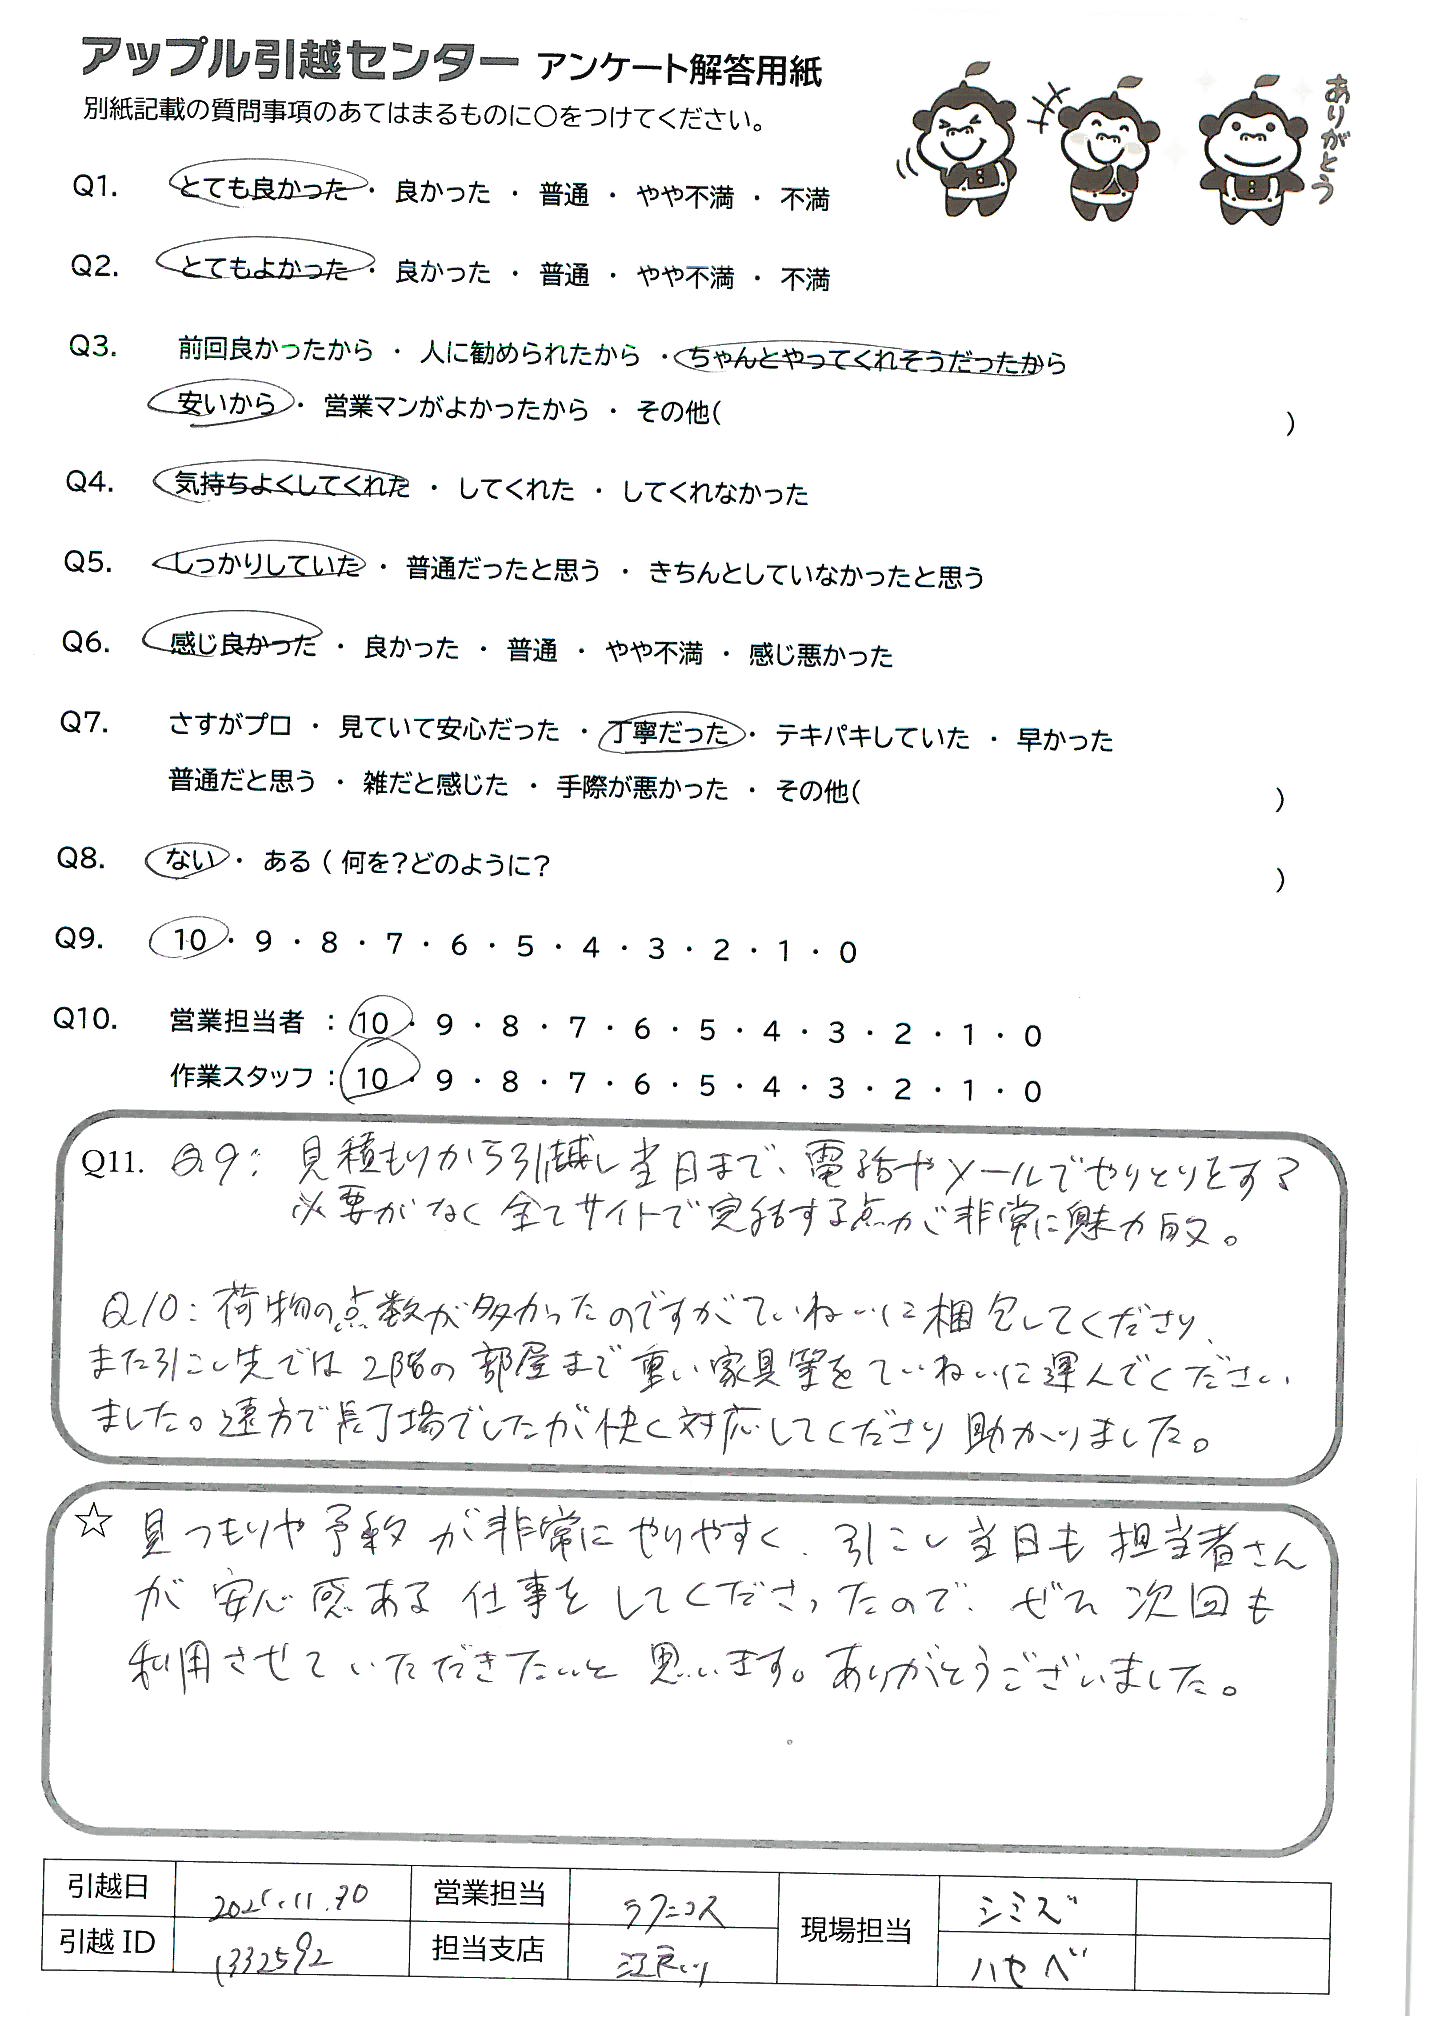 アップル引越センター アンケート解答用紙
別紙記載の質問事項のあてはまるものに○をつけてください。
ありがとう
Q1. とても良かった ・ 良かった ・ 普通 ・ やや不満 ・ 不満
Q2. とてもよかった ・ 良かった ・ 普通 ・ やや不満 ・ 不満
Q3. 前回良かったから ・ 人に勧められたから ・ ちゃんとやってくれそうだったから
安いから ・ 営業マンがよかったから ・ その他( )
Q4. 気持ちよくしてくれた ・ してくれた ・ してくれなかった
Q5. しっかりしていた ・ 普通だったと思う ・ きちんとしていなかったと思う
Q6. 感じ良かった ・ 良かった ・ 普通 ・ やや不満 ・ 感じ悪かった
Q7. さすがプロ ・ 見ていて安心だった ・ 丁寧だった ・ テキパキしていた ・ 早かった
普通だと思う ・ 雑だと感じた ・ 手際が悪かった ・ その他( )
Q8. ない ・ ある ( 何を?どのように? )
Q9. 10 ・ 9 ・ 8 ・ 7 ・ 6 ・ 5 ・ 4 ・ 3 ・ 2 ・ 1 ・ 0
Q10. 営業担当者 : 10 ・ 9 ・ 8 ・ 7 ・ 6 ・ 5 ・ 4 ・ 3 ・ 2 ・ 1 ・ 0
作業スタッフ : 10 ・ 9 ・ 8 ・ 7 ・ 6 ・ 5 ・ 4 ・ 3 ・ 2 ・ 1 ・ 0
Q11. Q9: 見積もりから引越し当日まで、電話やメールでやりとりをする
必要がなく全てサイトで完結する点が非常に魅力的。
Q10: 荷物の点数が多かったのですがていねいに梱包してくださり、
また引こし先では2階の部屋まで重い家具等をていねいに運んでください
ました。遠方で長丁場でしたが快く対応してくださり助かりました。
☆ 見つもりや予約が非常にやりやすく、引こし当日も担当者さん
が安心感ある仕事をしてくださったので、ぜひ次回も
利用させていただきたいと思います。ありがとうございました。
引越日 2025.11.30 営業担当 ラクニコス 現場担当 シミズ
引越 ID 1332592 担当支店 江戸川 ハセベ